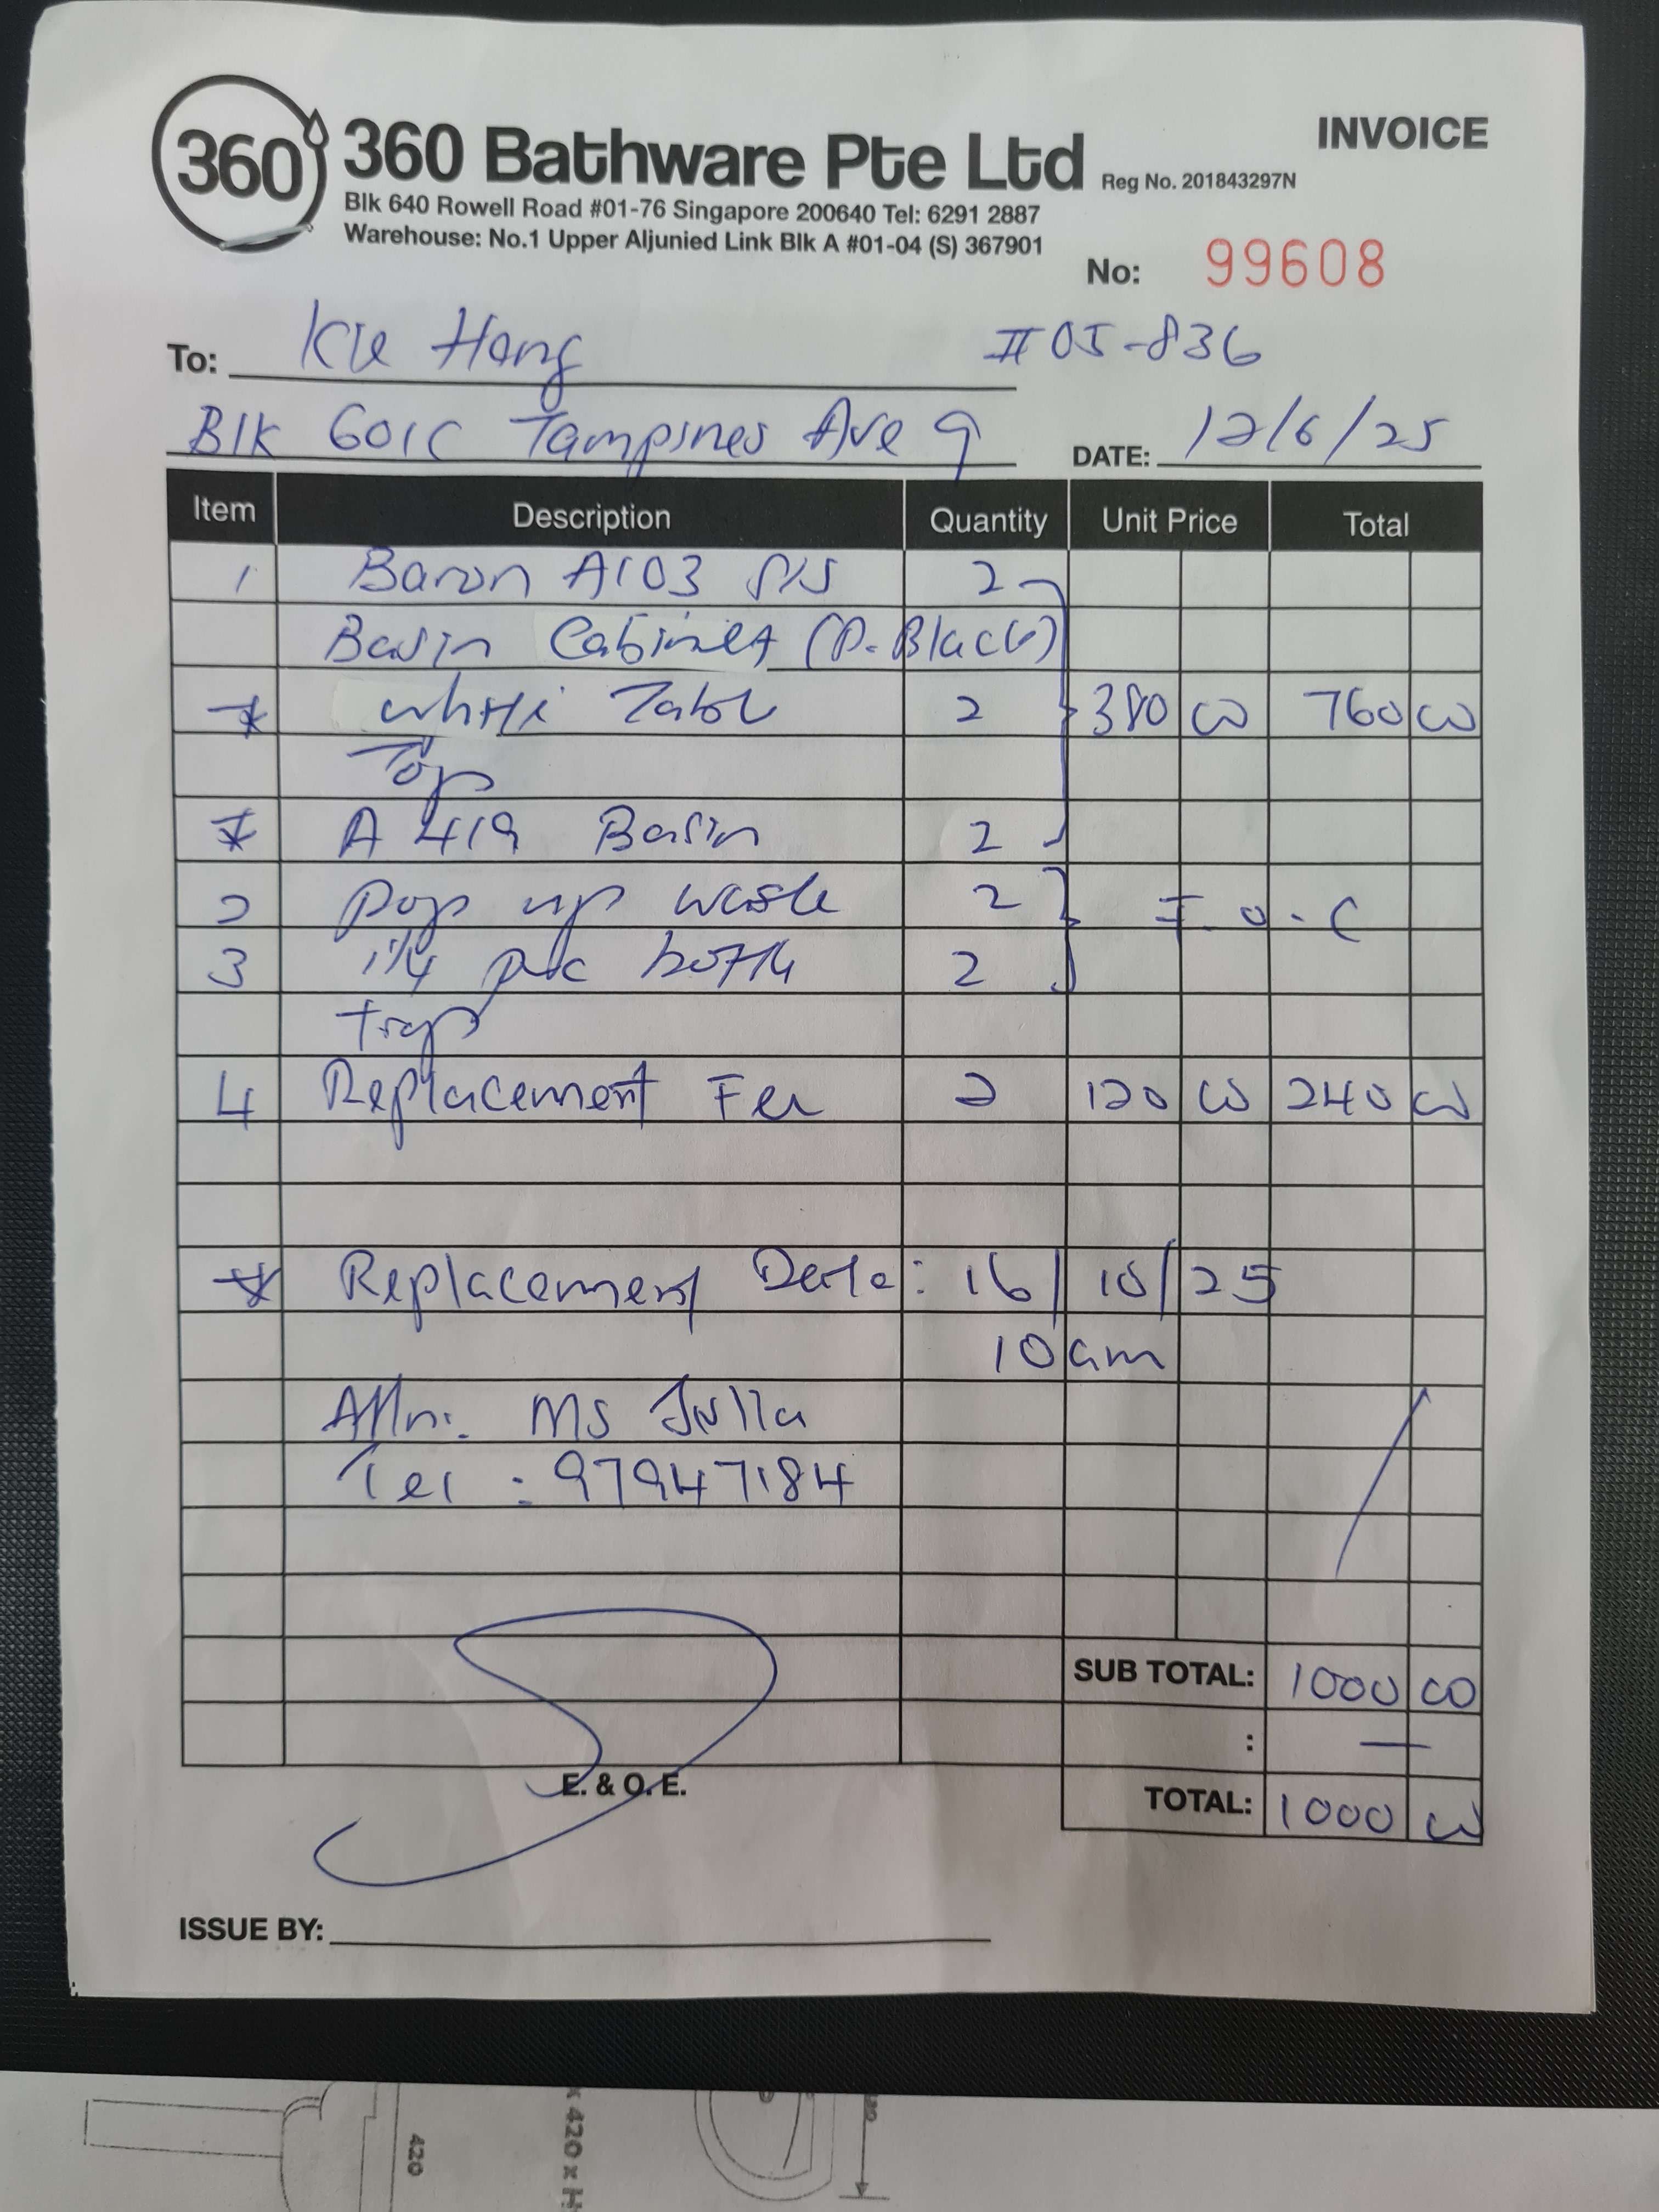 360
360 Bathware Pte Ltd Reg No. 201843297N
INVOICE
Blk 640 Rowell Road #01-76 Singapore 200640 Tel: 6291 2887
Warehouse: No.1 Upper Aljunied Link Blk A #01-04 (S) 367901
No: 99608
To: Hong #05-836
Blk 601C Tampines Ave 9 DATE: 12/6/25
Item Description Quantity Unit Price Total
1 Baron A103 S/S 2
Basin Cabinet (P. Black)
* White Table 2 380 00 760 00
Top
* A 419 Basin 2
2 Pop up waste 2 F.O.C
3 1 1/4 pvc bottle 2
Trap
4 Replacement Fee 2 120 00 240 00
* Replacement Date: 16/10/25
10am
Attn: Ms
Tel: 97947184
SUB TOTAL: 1000 00
: —
E. & O. E.
TOTAL: 1000 00
ISSUE BY:
420
x 420 x H